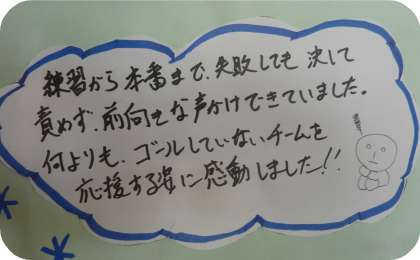 練習から本番まで、失敗しても決して
責めず、前向きな声かけできていました。
何よりも、ゴールしていないチームを
応援する姿に感動しました!!